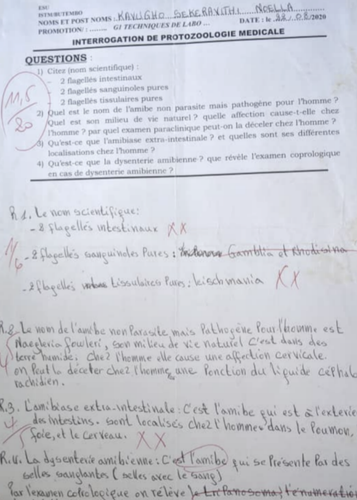 ESU
ISTM/BUTEMBO
NOMS ET POST NOMS : KAVUGHO SEKERAVITHI NOELLA DATE : le 22/08/2020
PROMOTION : G1 TECHNIQUES DE LABO ...
INTERROGATION DE PROTOZOOLOGIE MEDICALE
QUESTIONS :
1) Citez (nom scientifique) :
- 2 flagellés intestinaux
- 2 flagellés sanguinoles pures
- 2 flagellés tissulaires pures
2) Quel est le nom de l'amibe non parasite mais pathogène pour l'homme ?
Quel est son milieu de vie naturel ? quelle affection cause-t-elle chez
l'homme ? par quel examen paraclinique peut-on la déceler chez l'homme ?
3) Qu'est-ce que l'amibiase extra-intestinale ? et quelles sont ses différentes
localisations chez l'homme ?
4) Qu'est-ce que la dysenterie amibienne ? que révèle l'examen coprologique
en cas de dysenterie amibienne ?
11,5
20
R1. Le nom scientifique:
- 2 flagellés intestinaux XX
- 2 flagellés sanguinoles Pures : Gambtia et Rhodisina
- 2 flagellés tissulaires Pures : leischmania XX
R.2. Le nom de l'amibe non Parasite mais Pathogène Pour l'homme est
Naegheria fowleri, son milieu de vie naturel C'est dans des
terre humide; chez l'homme elle cause une affection cervicale.
on Peut le déceter chez l'homme, une Ponction du liquide céphalo
rachidien.
R.3. L'amibiase extra-intestinale: C'est l'amibe qui est à l'exterie
des intestins. sont localisés chez l'hommes dans le Poumon,
foie, et le cerveau. XX
R.4. La dysenterie amibienne: C'est l'amibe qui se Présente Par des
selles sanglantes (selles avec le sang)
Par l'examen coprologique on relève